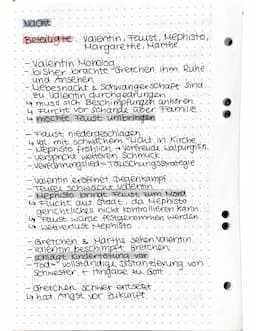 Nacht
Beteiligte: Valentin, Faust, Mephisto,
Margarethe, Marthe
- Valentin Monolog
- bisher brachte Gretchen ihm Ruhe
und Ansehen
- Liebesnacht & Schwangerschaft sind
zu Valentin durchgedrungen
↳ muss sich Beschimpfungen anhören
↳ Furcht vor Schande über Familie
↳ möchte Faust umbringen
- Faust niedergeschlagen
↳ vgl. mit schwachem Licht in Kirche
- Mephisto fröhlich → Vorfreude Walpurgisn.
- verspricht weiteren Schmuck
- Verführungslied - Täuschungsstrategie
- Valentin eröffnet Degenkampf
- Teufel schwächt Valentin
- Mephisto bringt Faust zum Mord
↳ Flucht aus Stadt, da Mephisto
gerichtliches nicht kontrollieren kann
↳ Faust würde festgenommen werden
↳ Wettverlust Mephisto
- Gretchen & Marthe sehen Valentin
- Valentin beschimpft Gretchen
- schlägt Kindertötung vor
- Tod = vollständige Distanzierung von
Schwester + Hingabe zu Gott
- Gretchen schwer entsetzt
↳ hat Angst vor Zukunft